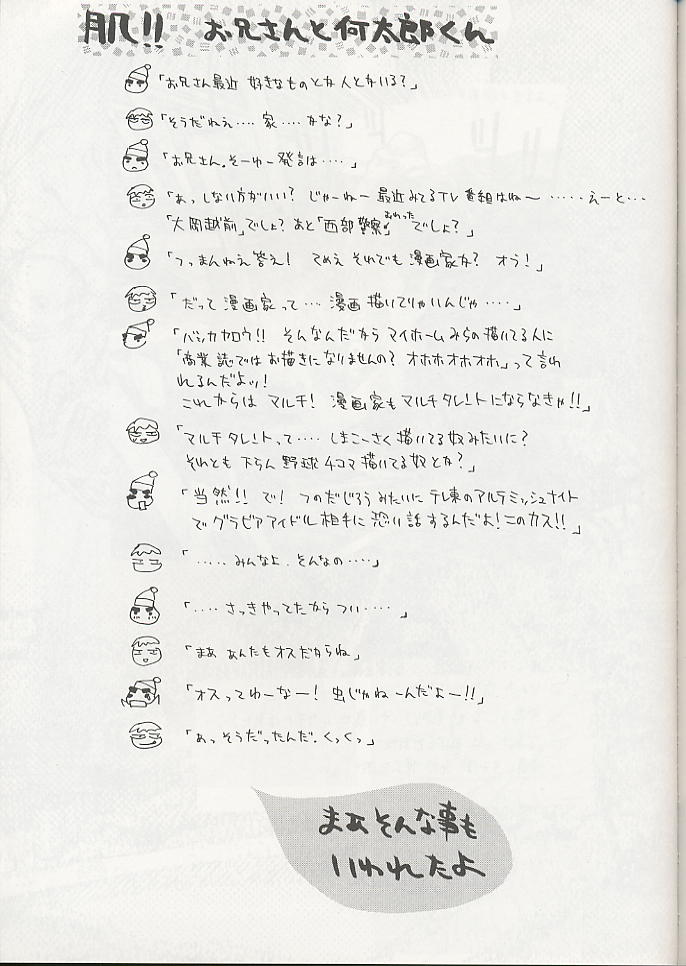 肌!! お兄さんと何太郎くん
「お兄さん最近 好きなものとか人とかいる?」
「そうだねえ‥‥ 家‥‥かな?」
「お兄さん.そーゆー発言は‥‥」
「あっしない方がいい? じゃーねー最近みてるTV番組はねー ‥‥‥えーと‥‥
「大岡越前」でしょ? あと「西部警察」でしょ?」
おわった
「つっまんねえ答え! てめえ それでも 漫画家か? オラ!」
「だって 漫画家って‥‥ 漫画 描いてりゃいんじゃ‥‥」
「バッカヤロウ!! そんなんだから マイホームみらの描いてる人に
「商業誌ではお描きになりませんの? オホホオホオホ」って言わ
れるんだよッ!
これからは マルチ! 漫画家も マルチタレントにならなきゃ!!」
「マルチタレントって‥‥ しまこーさく描いてる奴みたいに?
それとも 下らん 野球4コマ描いてる奴とか?」
「当然!! で! つのだじろうみたいに テレ東のアルテミッシュナイト
でグラビアアイドル相手に恐い話するんだよ!このカス!!」
「‥‥‥みんなよ.そんなの‥‥」
「‥‥さっきやってたから つい‥‥ 」
「まあ あんたもオスだからね」
「オスってゆーなー! 虫じゃねーんだよー!!」
「あっそうだったんだ.くっくっ」
まあそんな事も
いわれたよ